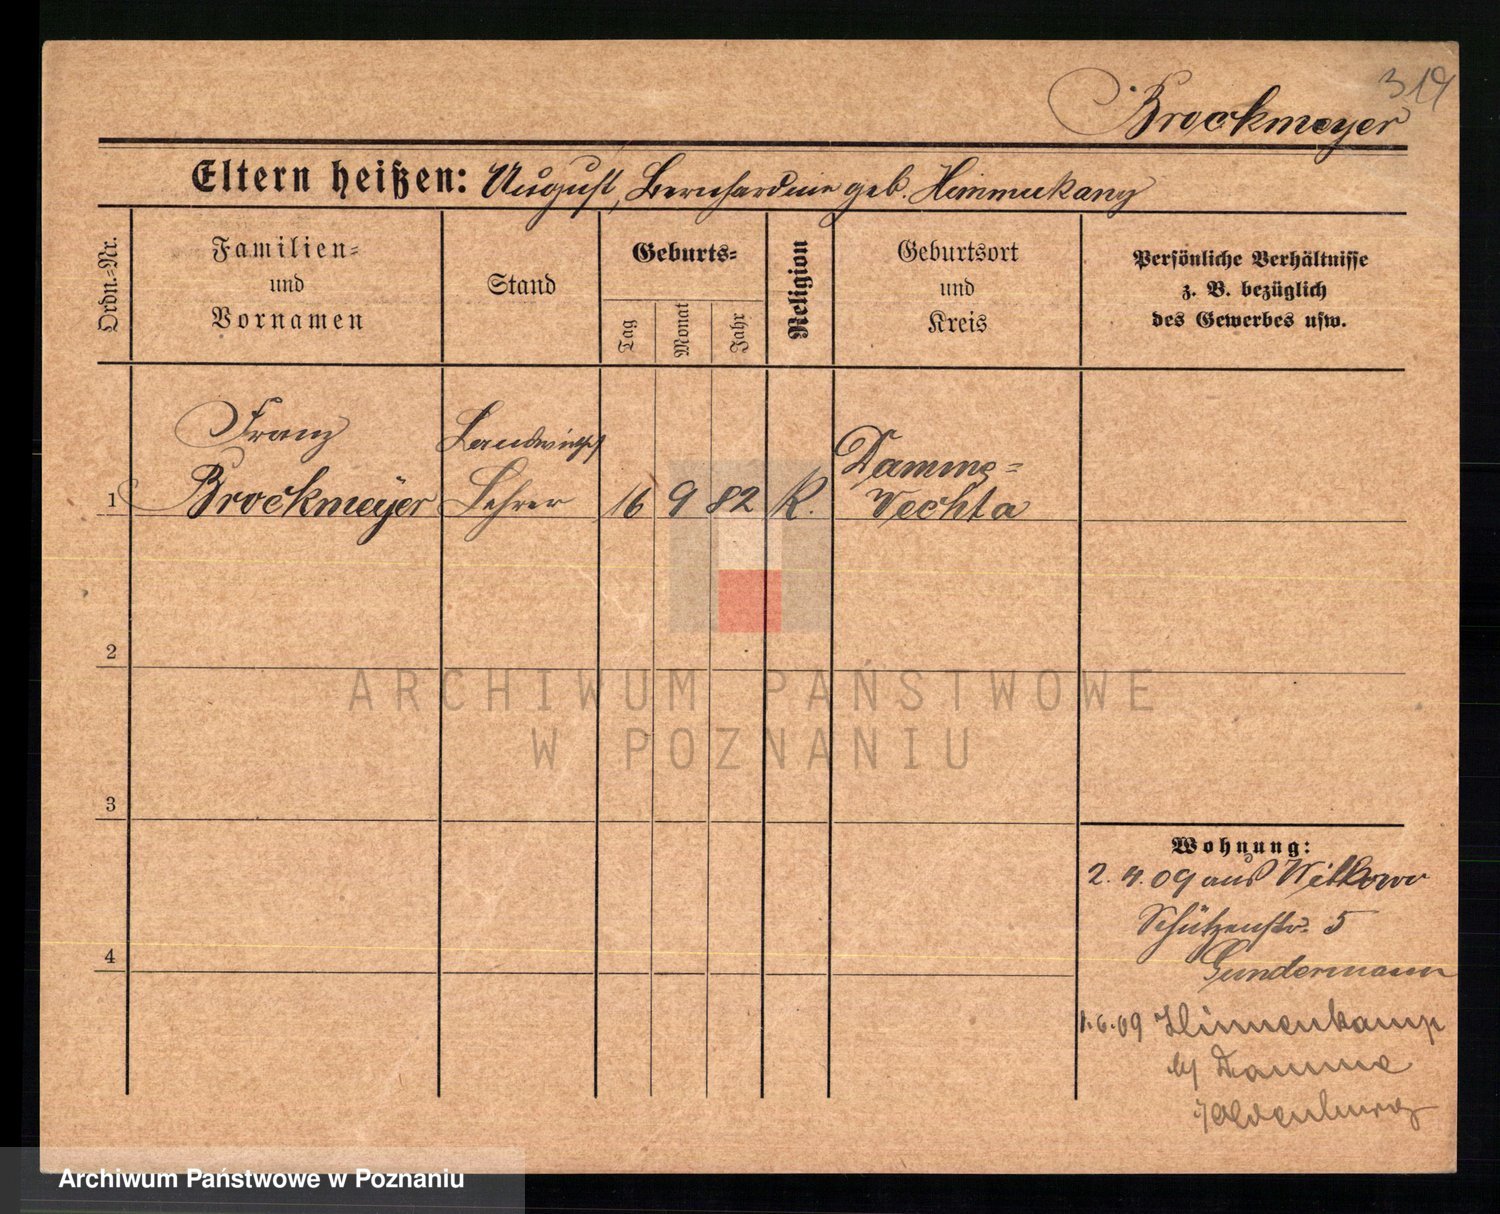 319
Brockmeyer
Eltern heißen: August, Bernhardine geb.
Ordn.-Nr.
Familien-
und
Vornamen
Stand
Geburts-
Tag
Monat
Jahr
Religion
Geburtsort
und
Kreis
Persönliche Verhältnisse
z. B. bezüglich
des Gewerbes usw.
Franz
Landwirtsch
Damme-
1 Brockmeyer Lehrer 16 9 82 K. Vechta
2
ARCHIWUM PAŃSTWOWE
W POZNANIU
3
Wohnung:
2.4.09 aus Witkowo
Schützenstr. 5
4
Gundermann
1.6.09 Himmenkamp
b/ Damme
Oldenburg
Archiwum Państwowe w Poznaniu